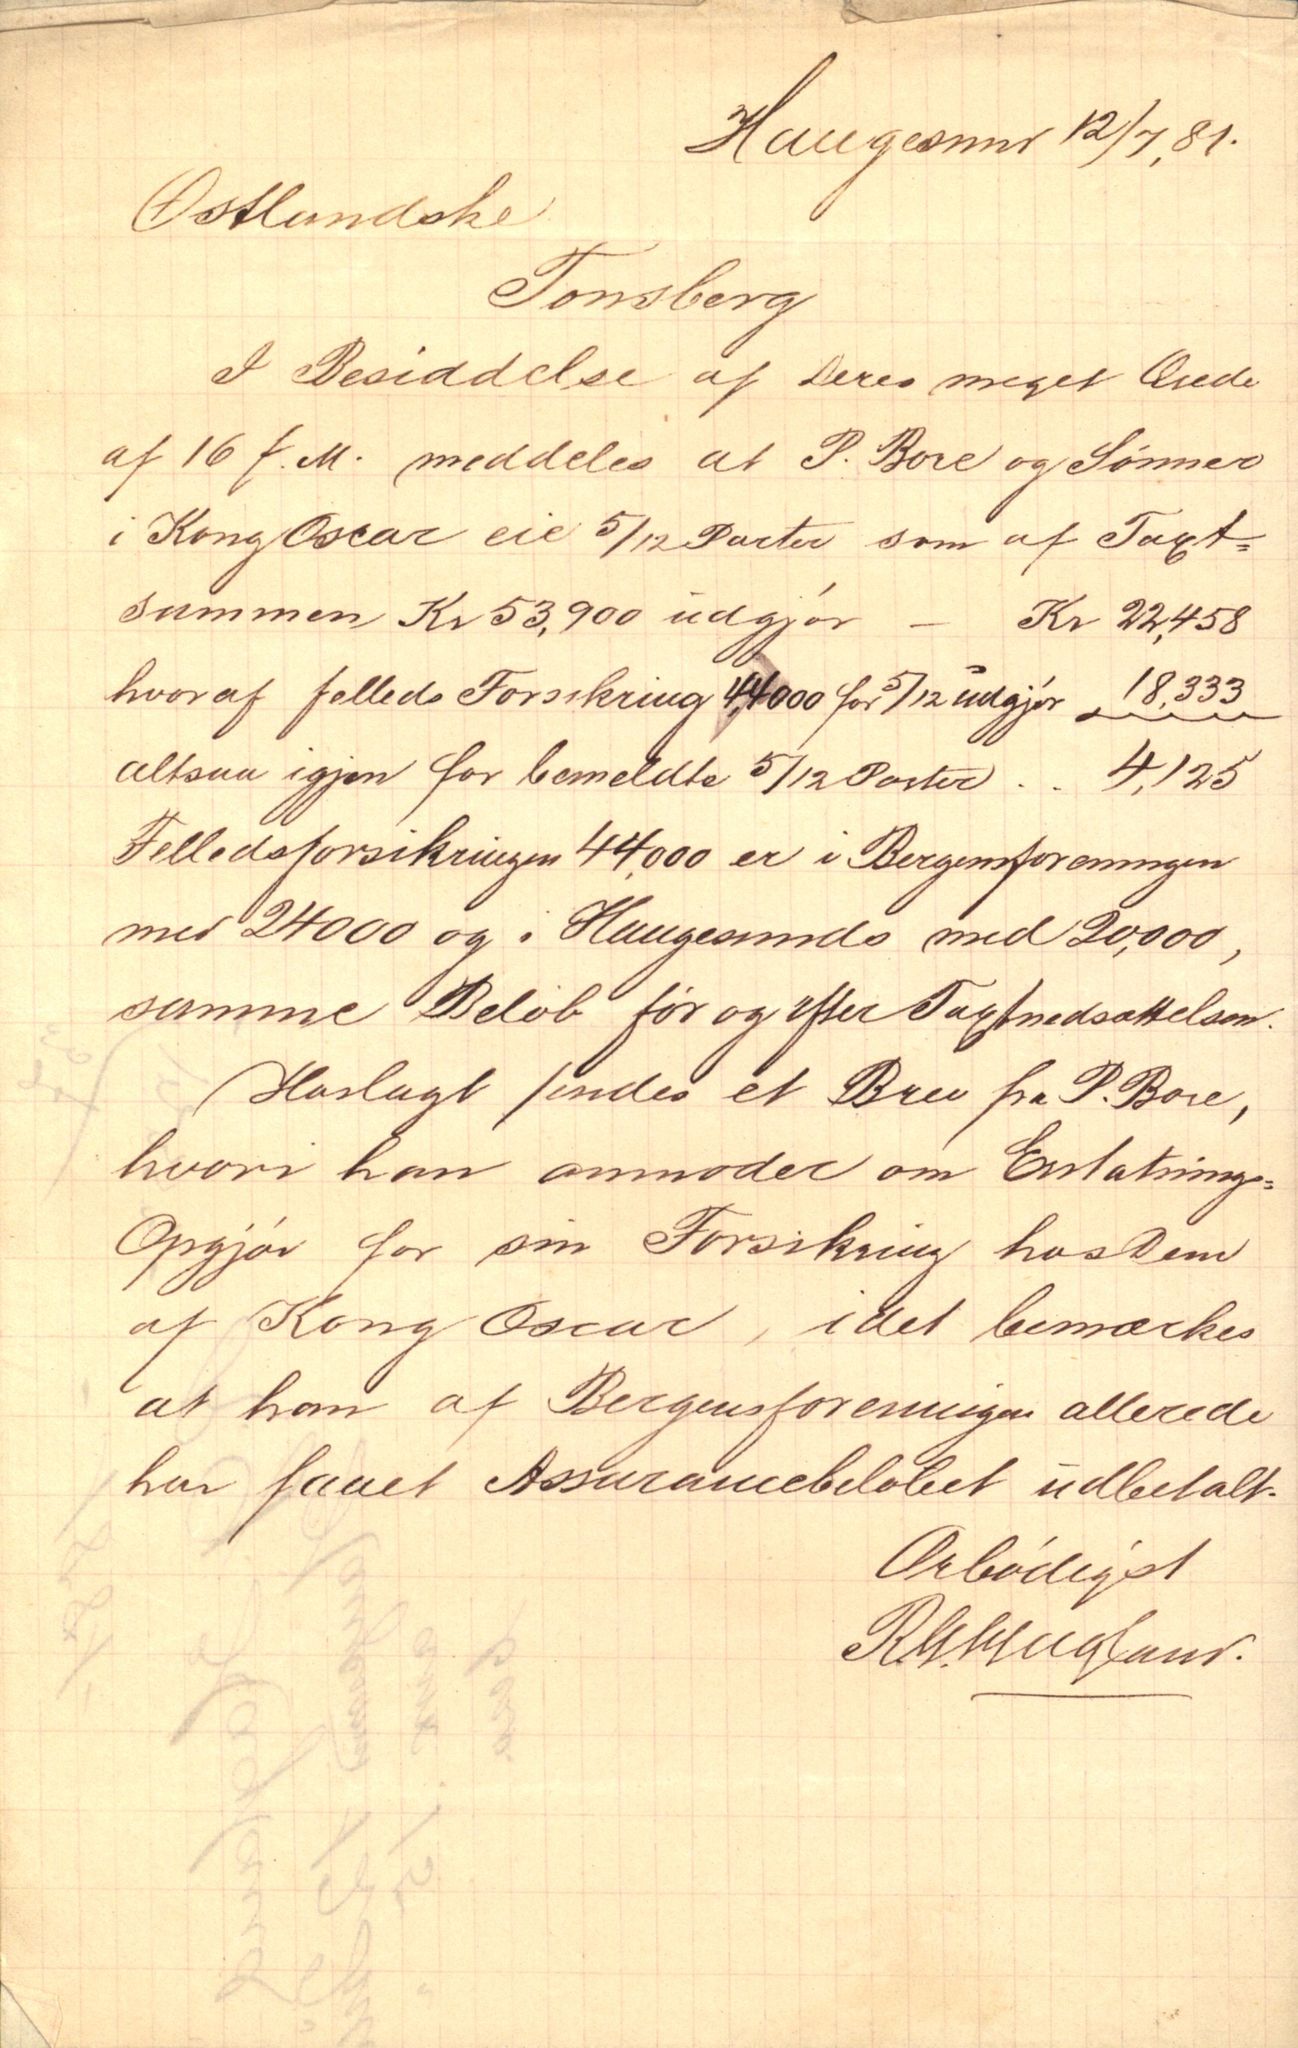 Haugesund 12/7,81.
Østlandske
Tønsberg
I Besiddelse af Deres meget Ærede
af 16 f. M. meddeles at P. Bore og Sønner
i Kong Oscar eie 5/12 Parter som af Taxt=
summen Kr 53,900 udgjør — Kr 22,458
hvoraf felleds Forsikring 44,000 for 5/12 udgjør 18,333
altsaa igjen for bemeldte 5/12 Parter . . 4,125
Felledsforsikringen 44,000 er i Bergensforeningen
med 24000 og i Haugesunds med 20,000,
samme Beløb før og efter Taxtnedsættelsen.
Hoslagt sendes et Brev fra P. Bore,
hvori han anmoder om Erstatnings=
Opgjør for sin Forsikring hos Dem
af Kong Oscar, idet bemærkes
at han af Bergensforeningen allerede
har faaet Assurancebeløbet udbetalt.
Ærbødigst